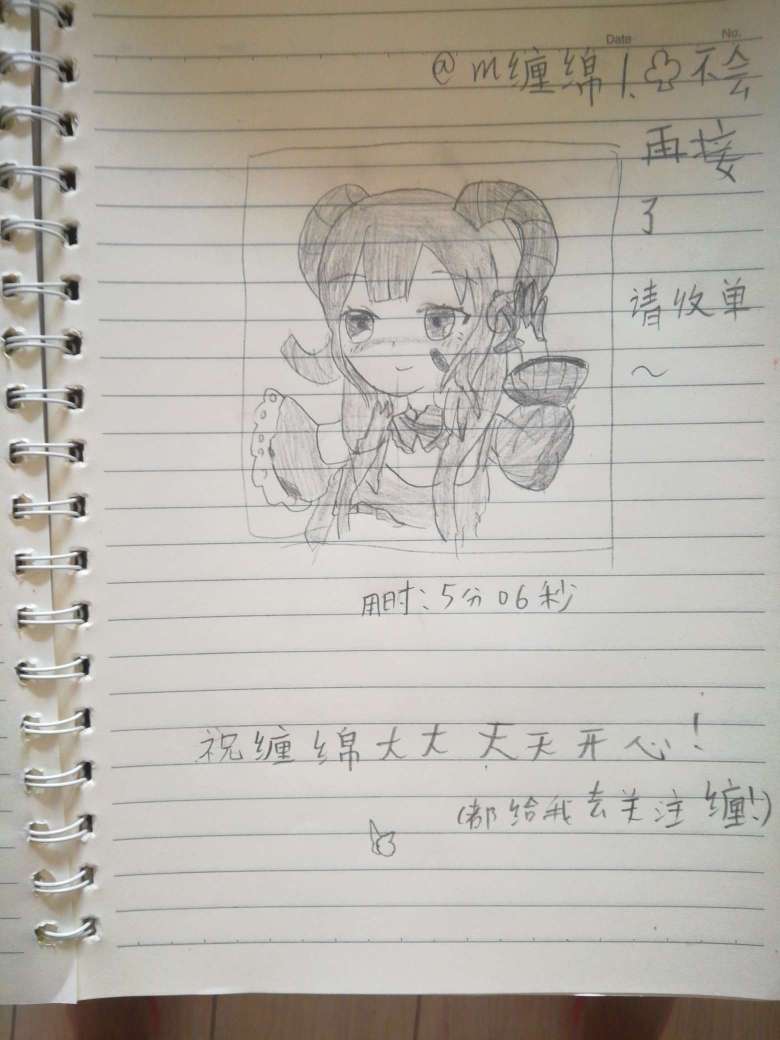 Date
No.
@m缠绵1.不会
再接
了
请收单
～
用时：5分06秒
祝缠绵大大天天开心！
（都给我去关注缠！）